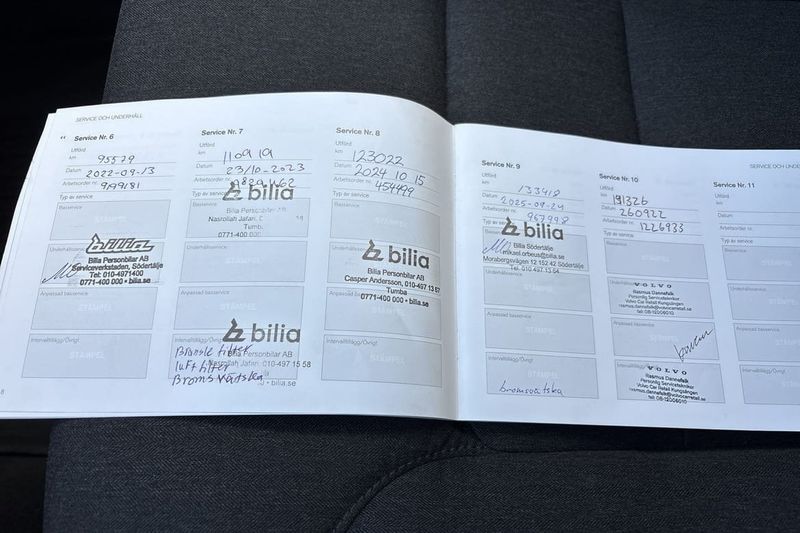 SERVICE OCH UNDERHÅLL
Service Nr. 6
Utförd
km 95579
Datum 2022-09-13
Arbetsorder nr.
Typ av service
Basservice
STÄMPEL
bilia
Bilia Personbilar AB
Serviceverkstaden, Södertälje
Tel: 010-4971400
0771-400 000 • bilia.se
Anpassad basservice
STÄMPEL
Intervalltillägg/Övrigt
STÄMPEL
Service Nr. 7
Utförd
km 110919
Datum 23/10-2023
Arbetsorder nr.
Typ av service
bilia
Bilia Personbilar AB
Nasrollah Jafari
Tumba
0771-400 000
Underhållsservice
STÄMPEL
Anpassad basservice
STÄMPEL
bilia
Bilia Personbilar AB
Nasrollah Jafari: 010-497 15 58
• bilia.se
Bränsle filter
luft filter
Broms vätska
Service Nr. 8
Utförd
km 123022
Datum 2024 10 15
Arbetsorder nr. 454499
Typ av service
Basservice
STÄMPEL
bilia
Bilia Personbilar AB
Casper Andersson, 010-497 13 57
Tumba
0771-400 000 • bilia.se
Intervalltillägg/Övrigt
STÄMPEL
SERVICE OCH UND
Service Nr. 9
Utförd
km 133418
Datum 2025-09-24
Arbetsorder nr. 967998
Typ av service
bilia
Bilia Södertälje
mikael.orbeus@bilia.se
Morabergsvägen 12 152 42 Södertälje
Tel. 010-497 13 54
Underhållsservice
STÄMPEL
Anpassad basservice
STÄMPEL
Intervalltillägg/Övrigt
STÄMPEL
bromsvätska
Service Nr. 10
Utförd
km 191326
Datum 260922
Arbetsorder nr. 1226933
Typ av service
Basservice
STÄMPEL
Underhållsservice
VOLVO
Rasmus Dannefalk
Personlig Servicetekniker
Volvo Car Retail Kungsängen
rasmus.dannefalk@volvocarretail.se
tel: 08-12006010
Anpassad basservice
STÄMPEL
Intervalltillägg/Övrigt
VOLVO
Rasmus Dannefalk
Personlig Servicetekniker
Volvo Car Retail Kungsängen
rasmus.dannefalk@volvocarretail.se
tel: 08-12006010
Service Nr. 11
Utförd
km
Datum
Arbetsorder nr.
Typ av service
Basservice
Underhållsservice
Anpassad basservice
Intervalltillägg/Övrigt